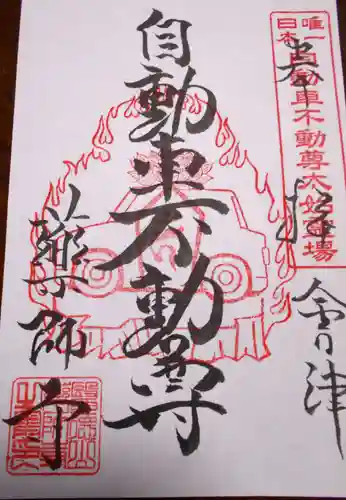 日本
唯一
自動車不動尊
奉拝
会津
自動車不動尊
薬師寺